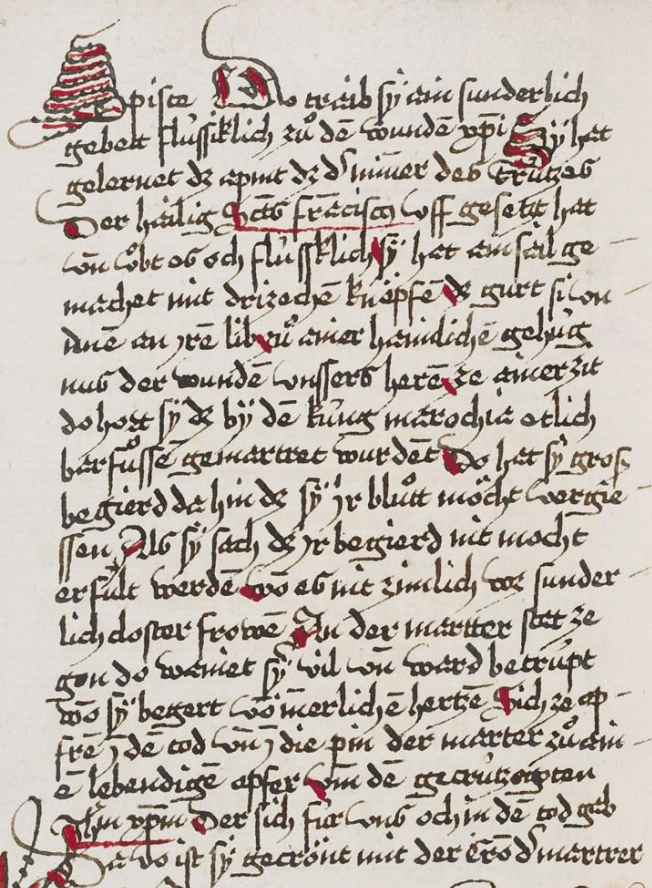 apiste Do traib sÿ ain sunderlich
gebett flússiklich zů dē wundē xp̄i Sÿ hat
gelernet dz apmt dz dˢ minner des Crútzes
Der hailig Sctˢ frācisco uff gesetzt hat
vn̄ ůbt es och flússklich sÿ hat ain sail ge
machet mit drizechē knöpfē dz gurt si vn
dnē an yrē lib zů ainer haimlichē gehúg
nus der wundē vnssers herē ze ainer zit
do hort sÿ dz bÿ dē kúng marochia etlich
barfůssē gemartret wurdēt Do hat sÿ gros
begierd da hin dz sÿ ÿr blůtt möcht vergie
ssen Als sÿ sach dz yr begierd nit mocht
erfúlt werdē wō es nit zimlich wz sunder
lich closter frowē In der martter stat ze
gon do wainet sÿ vil vn̄ ward betrúpt
wō sÿ begert vō im̄erlichē hertzē Sich ze op
frē j dē tod vn̄ j die pin der marter zů ain
ē lebendigē opfer vm dē gecrútzgoten
Jhm xp̄m Der sich fúr vns och in dē tod gab
Da vo ist sÿ gecrönt mit der crō dˢ martrer